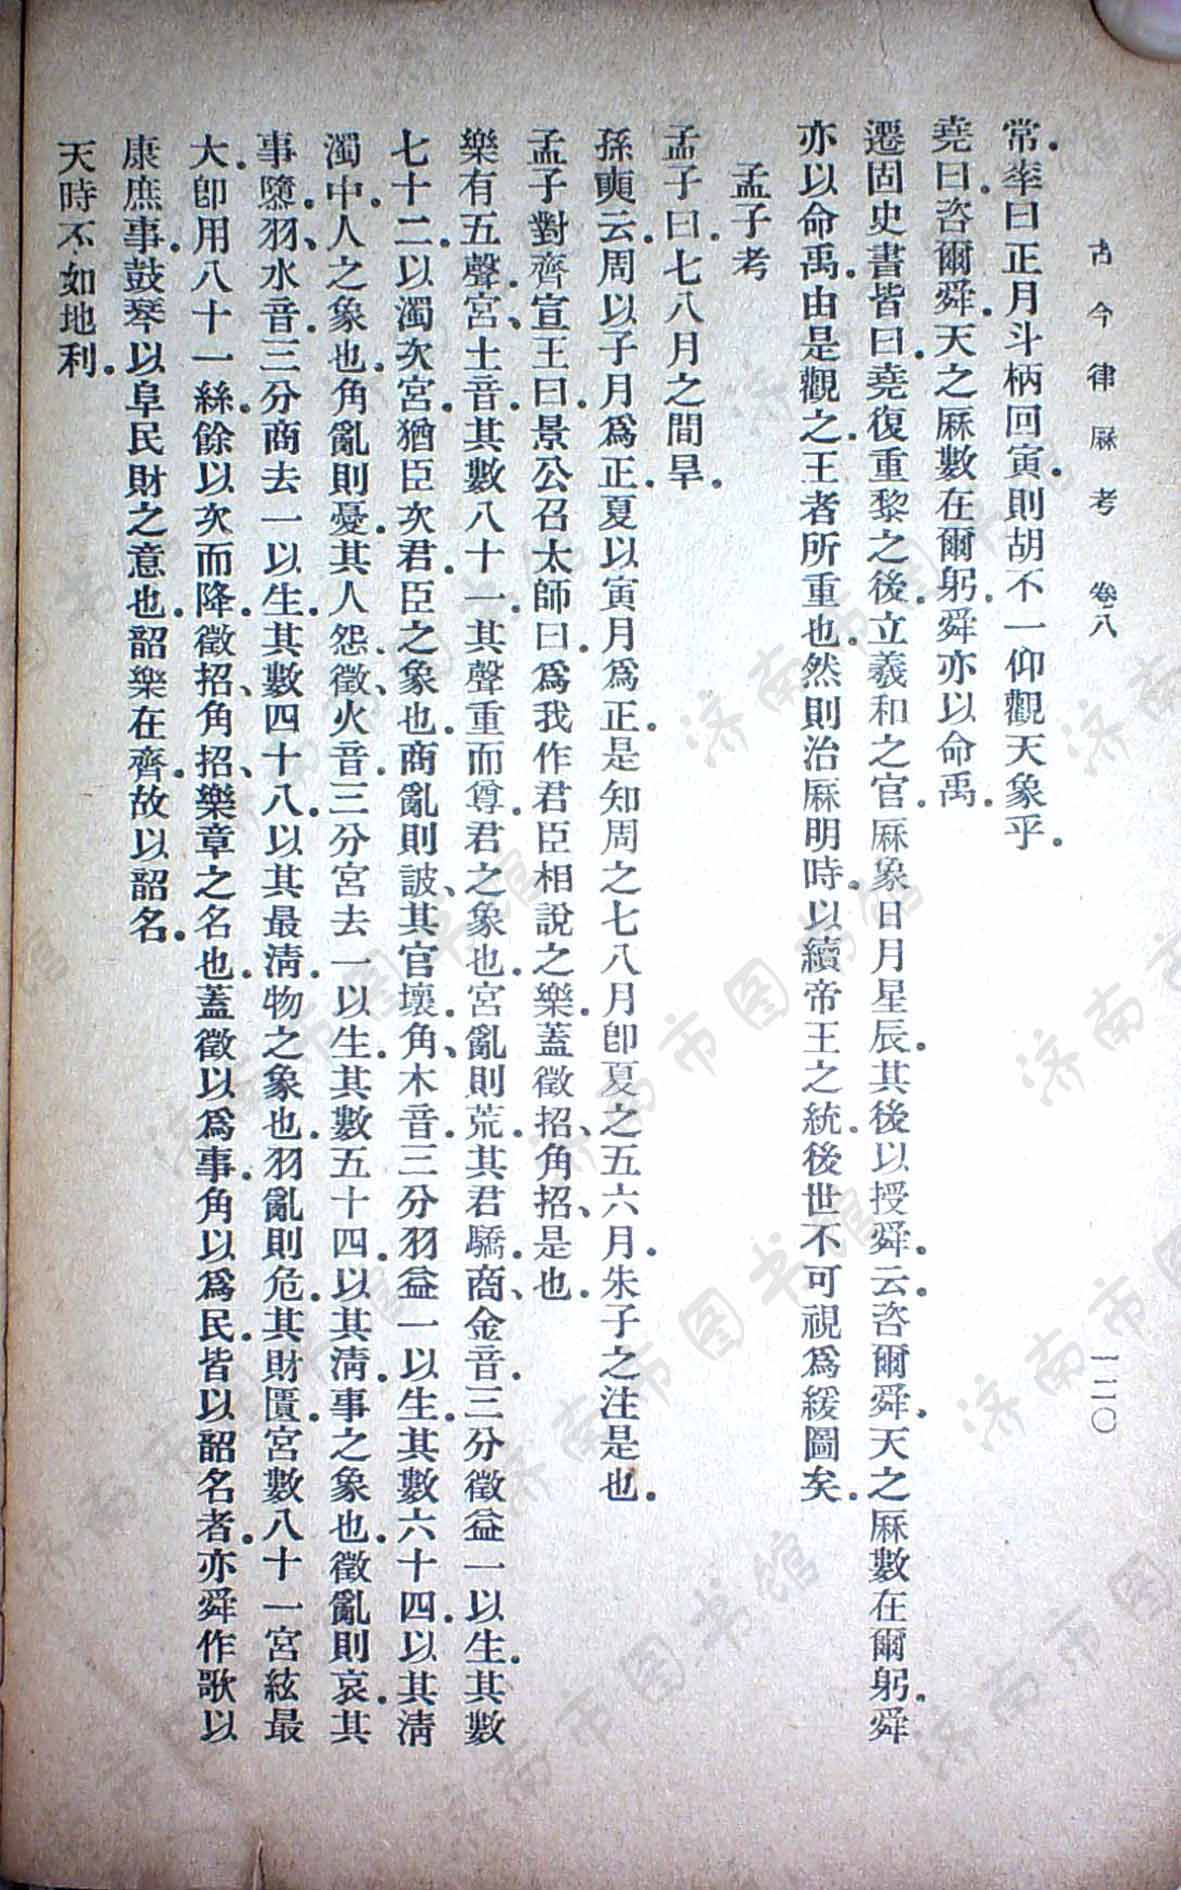 古今律厤考 卷八 一二〇
常。率曰正月斗柄回寅。則胡不一仰觀天象乎。
堯曰。咨爾舜。天之厤數在爾躬。舜亦以命禹。
遷固史書皆曰。堯復重黎之後。立羲和之官。厤象日月星辰。其後以授舜。云。咨爾舜。天之厤數在爾躬。舜
亦以命禹。由是觀之。王者所重也。然則治厤明時。以續帝王之統。後世不可視爲緩圖矣。
孟子考
孟子曰。七八月之間旱。
孫奭云。周以子月爲正。夏以寅月爲正。是知周之七八月卽夏之五六月。朱子之注是也。
孟子對齊宣王曰。景公召太師曰。爲我作君臣相說之樂。蓋徵招、角招。是也。
樂有五聲。宮、土音。其數八十一。其聲重而尊。君之象也。宮亂則荒。其君驕。商、金音。三分徵益一以生。其數
七十二。以濁次宮。猶臣次君。臣之象也。商亂則詖、其官壞。角、木音。三分羽益一以生。其數六十四。以其清
濁中。人之象也。角亂則憂。其人怨、徵、火音。三分宮去一以生。其數五十四。以其清。事之象也。徵亂則哀。其
事隳。羽、水音。三分商去一以生。其數四十八。以其最淸。物之象也。羽亂則危。其財匱。宮數八十一宮絃最
大。卽用八十一絲。餘以次而降。徵招、角招、樂章之名也。蓋徵以爲事。角以爲民。皆以韶名者。亦舜作歌以
康庶事。鼓琴以阜民財之意也。韶樂在齊。故以韶名。
天時不如地利。